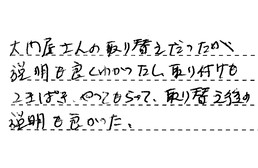 大門屋さんの取り替えだったが
説明も良くわかったし、取り付けも
てきぱきやってもらって、取り替え後の
説明も良かった。